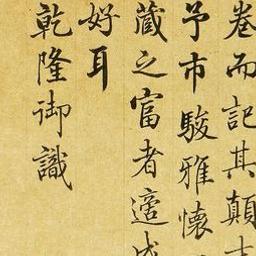 卷而記其顛末
予市駿雅懷
藏之富者適成
好耳
乾隆御識